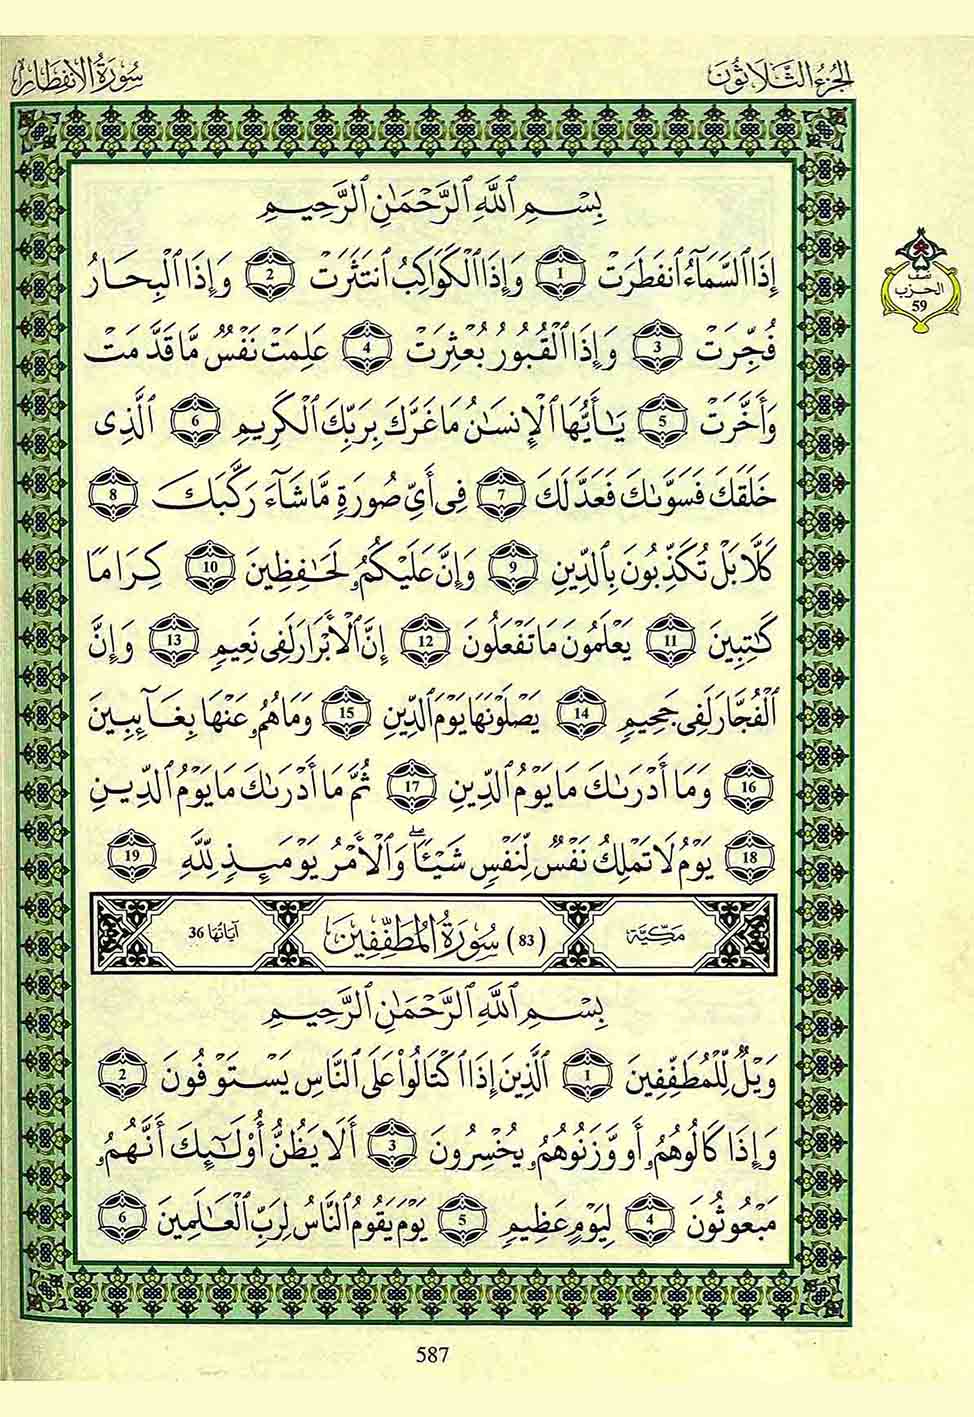 الجزء الثلاثون
سورة الانفطار
بِسْمِ ٱللَّهِ ٱلرَّحْمَٰنِ ٱلرَّحِيمِ
إِذَا ٱلسَّمَآءُ ٱنفَطَرَتْ 1 وَإِذَا ٱلْكَوَاكِبُ ٱنتَثَرَتْ 2 وَإِذَا ٱلْبِحَارُ
نصف
الحزب
59
فُجِّرَتْ 3 وَإِذَا ٱلْقُبُورُ بُعْثِرَتْ 4 عَلِمَتْ نَفْسٌ مَّا قَدَّمَتْ
وَأَخَّرَتْ 5 يَٰأَيُّهَا ٱلْإِنسَٰنُ مَا غَرَّكَ بِرَبِّكَ ٱلْكَرِيمِ 6 ٱلَّذِى
خَلَقَكَ فَسَوَّىٰكَ فَعَدَّلَكَ 7 فِى أَىِّ صُورَةٍ مَّا شَآءَ رَكَّبَكَ 8
كَلَّا بَلْ تُكَذِّبُونَ بِٱلدِّينِ 9 وَإِنَّ عَلَيْكُمُۥ لَحَٰفِظِينَ 10 كِرَامًا
كَٰتِبِينَ 11 يَعْلَمُونَ مَا تَفْعَلُونَ 12 إِنَّ ٱلْأَبْرَارَ لَفِى نَعِيمٍ 13 وَإِنَّ
ٱلْفُجَّارَ لَفِى جَحِيمٍ 14 يَصْلَوْنَهَا يَوْمَ ٱلدِّينِ 15 وَمَا هُمُۥ عَنْهَا بِغَآئِبِينَ
16 وَمَا أَدْرَىٰكَ مَا يَوْمُ ٱلدِّينِ 17 ثُمَّ مَا أَدْرَىٰكَ مَا يَوْمُ ٱلدِّينِ
18 يَوْمُ لَا تَمْلِكُ نَفْسٌ لِّنَفْسٍ شَيْـًٔا ۖ وَٱلْأَمْرُ يَوْمَئِذٍ لِّلَّهِ 19
مكية (83) سورة المطففين آياتها 36
بِسْمِ ٱللَّهِ ٱلرَّحْمَٰنِ ٱلرَّحِيمِ
وَيْلٌ لِّلْمُطَفِّفِينَ 1 ٱلَّذِينَ إِذَا ٱكْتَالُوا۟ عَلَى ٱلنَّاسِ يَسْتَوْفُونَ 2
وَإِذَا كَالُوهُمُۥ أَو وَّزَنُوهُمُۥ يُخْسِرُونَ 3 أَلَا يَظُنُّ أُو۟لَٰٓئِكَ أَنَّهُمُۥ
مَبْعُوثُونَ 4 لِيَوْمٍ عَظِيمٍ 5 يَوْمَ يَقُومُ ٱلنَّاسُ لِرَبِّ ٱلْعَٰلَمِينَ 6
587